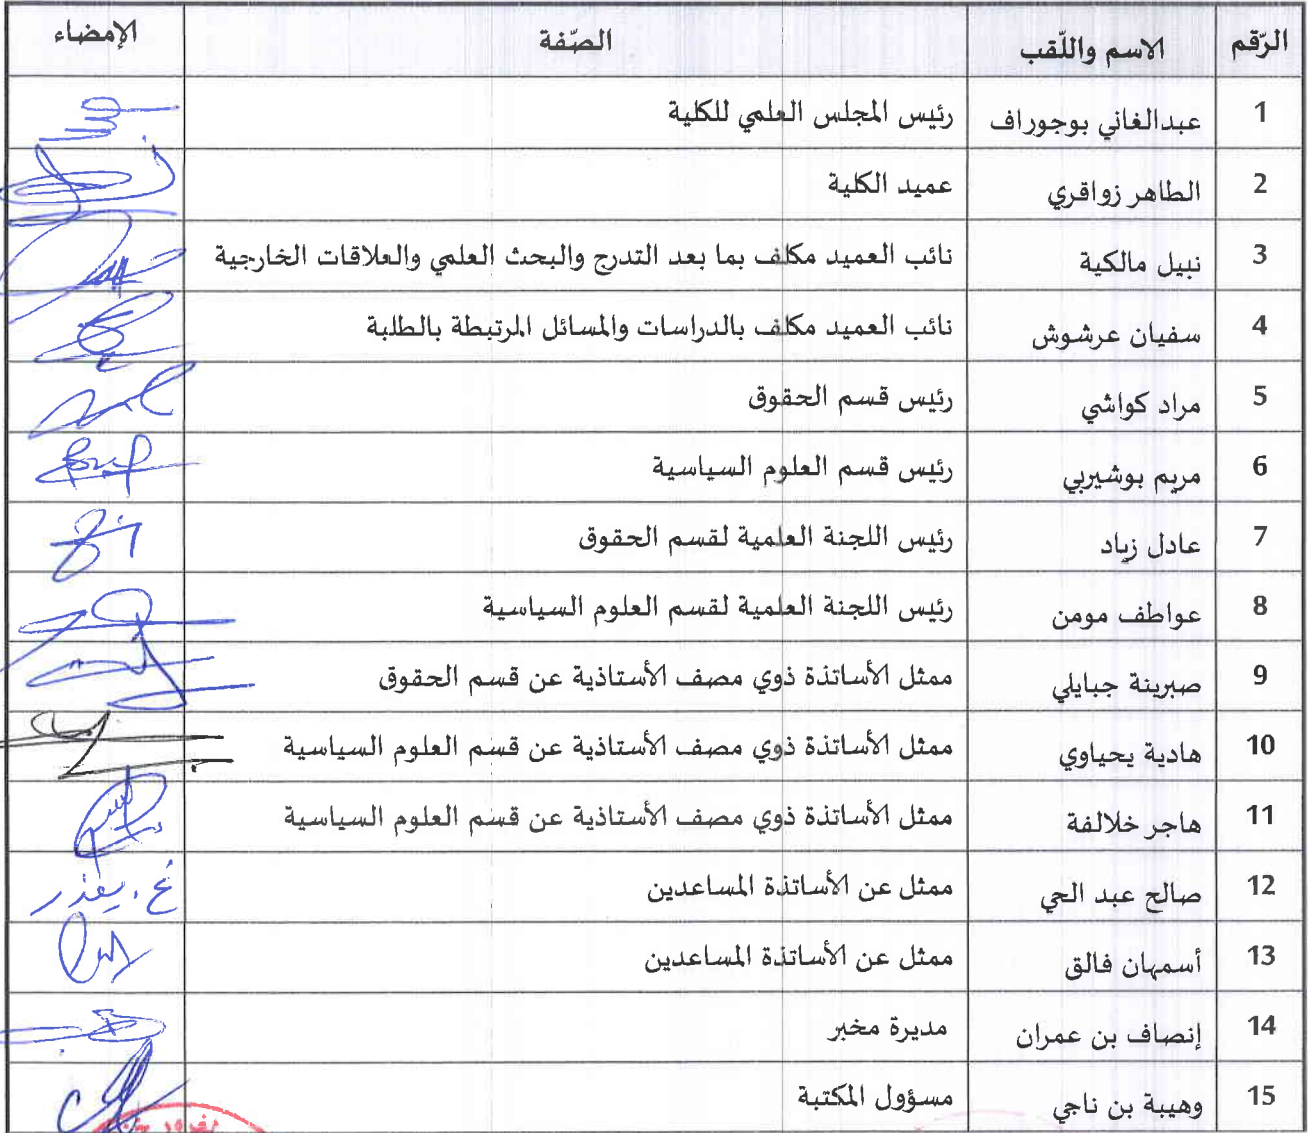 الرّقم الاسم واللّقب الصّفة الإمضاء
1 عبدالغاني بوجوراف رئيس المجلس العلمي للكلية
2 الطاهر زواقري عميد الكلية
3 نبيل مالكية نائب العميد مكلف بما بعد التدرج والبحث العلمي والعلاقات الخارجية
4 سفيان عرشوش نائب العميد مكلف بالدراسات والمسائل المرتبطة بالطلبة
5 مراد كواشي رئيس قسم الحقوق
6 مريم بوشيربي رئيس قسم العلوم السياسية
7 عادل زياد رئيس اللجنة العلمية لقسم الحقوق
8 عواطف مومن رئيس اللجنة العلمية لقسم العلوم السياسية
9 صبرينة جبايلي ممثل الأساتذة ذوي مصف الأستاذية عن قسم الحقوق
10 هادية يحياوي ممثل الأساتذة ذوي مصف الأستاذية عن قسم العلوم السياسية
11 هاجر خلالفة ممثل الأساتذة ذوي مصف الأستاذية عن قسم العلوم السياسية
12 صالح عبد الحي ممثل عن الأساتذة المساعدين
13 أسمهان فالق ممثل عن الأساتذة المساعدين
14 إنصاف بن عمران مديرة مخبر
15 وهيبة بن ناجي مسؤول المكتبة